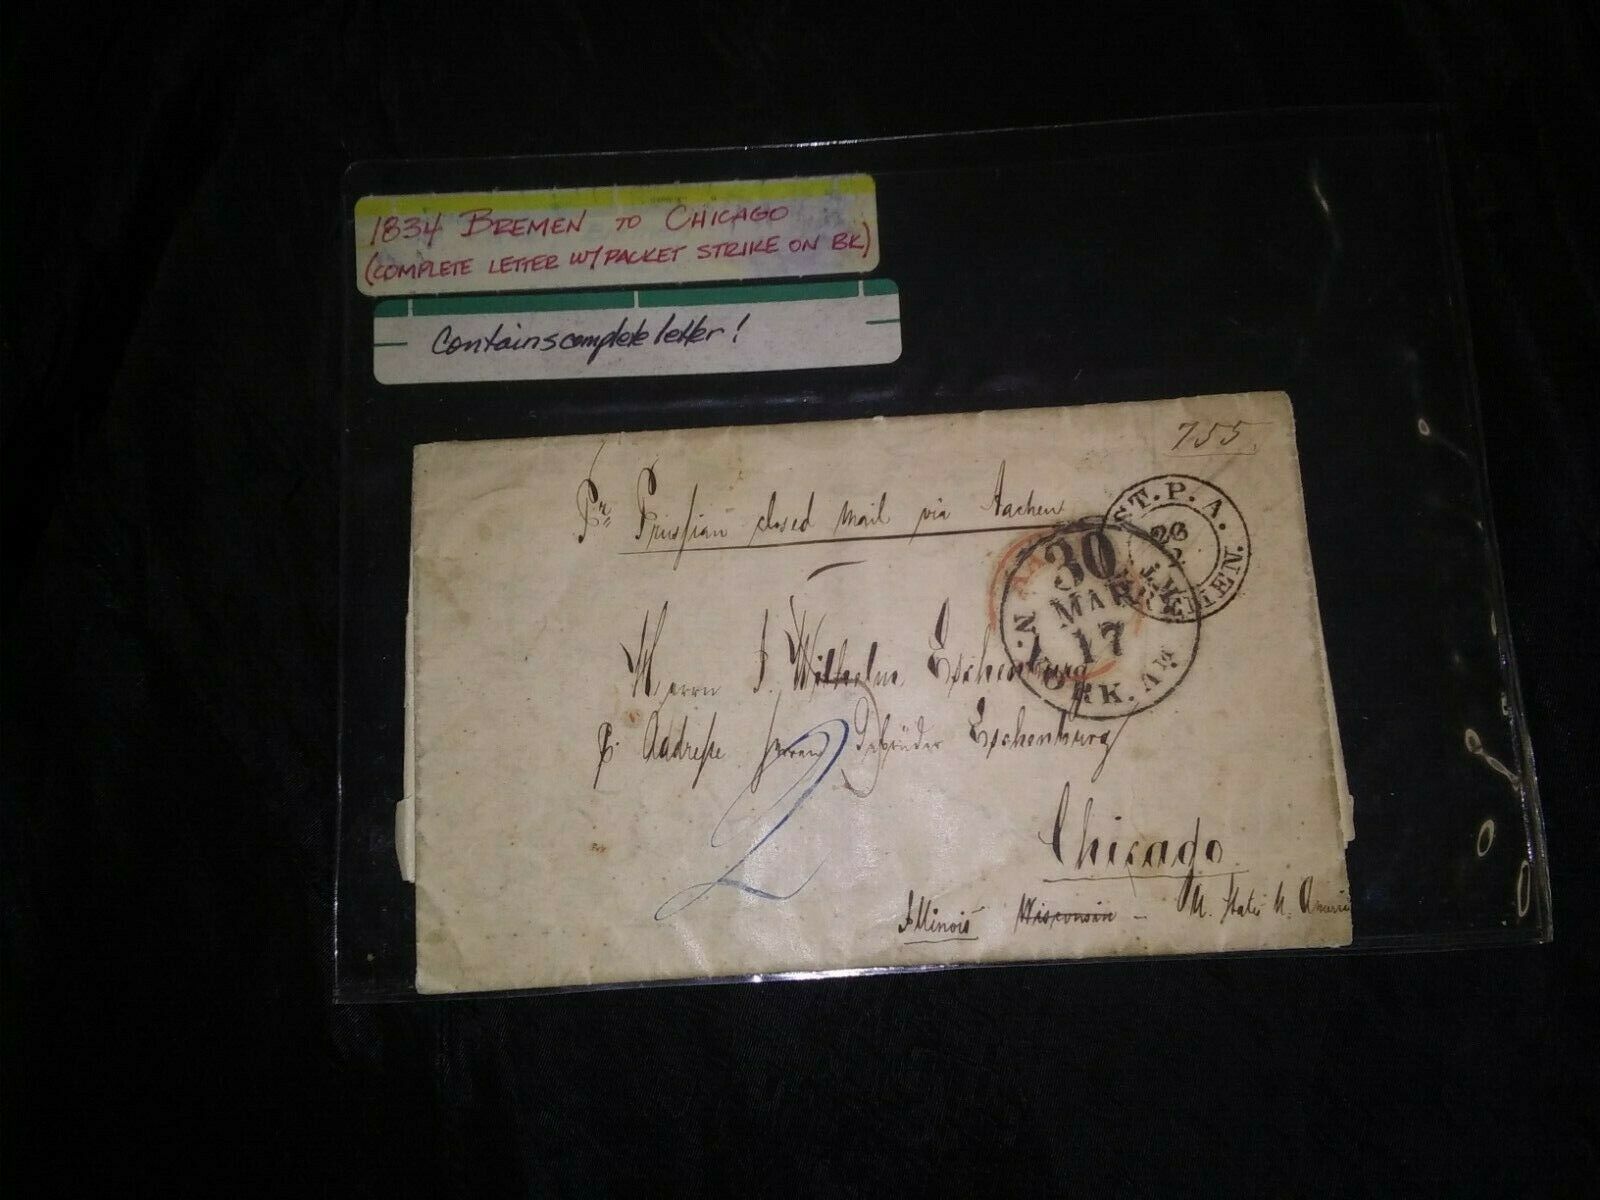 1834 BREMEN TO CHICAGO
(COMPLETE LETTER W/ PACKET STRIKE ON BK)
Contains complete letter!
755.
Pr Prussian closed mail via Aachen
ST. P. A.
26
2
30
MAR
17
N. YORK. AM.
Herrn J. Wilhelm Eschenburg
p. Addresse Herren Gebrüder Eschenburg
2
Chicago
Illinois Wisconsin - U. States N. America